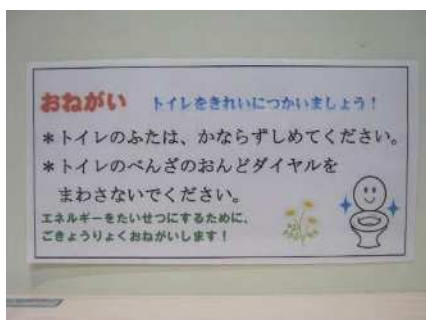 おねがい トイレをきれいにつかいましょう!
*トイレのふたは、かならずしめてください。
*トイレのべんざのおんどダイヤルを
まわさないでください。
エネルギーをたいせつにするために、
ごきょうりょくおねがいします!